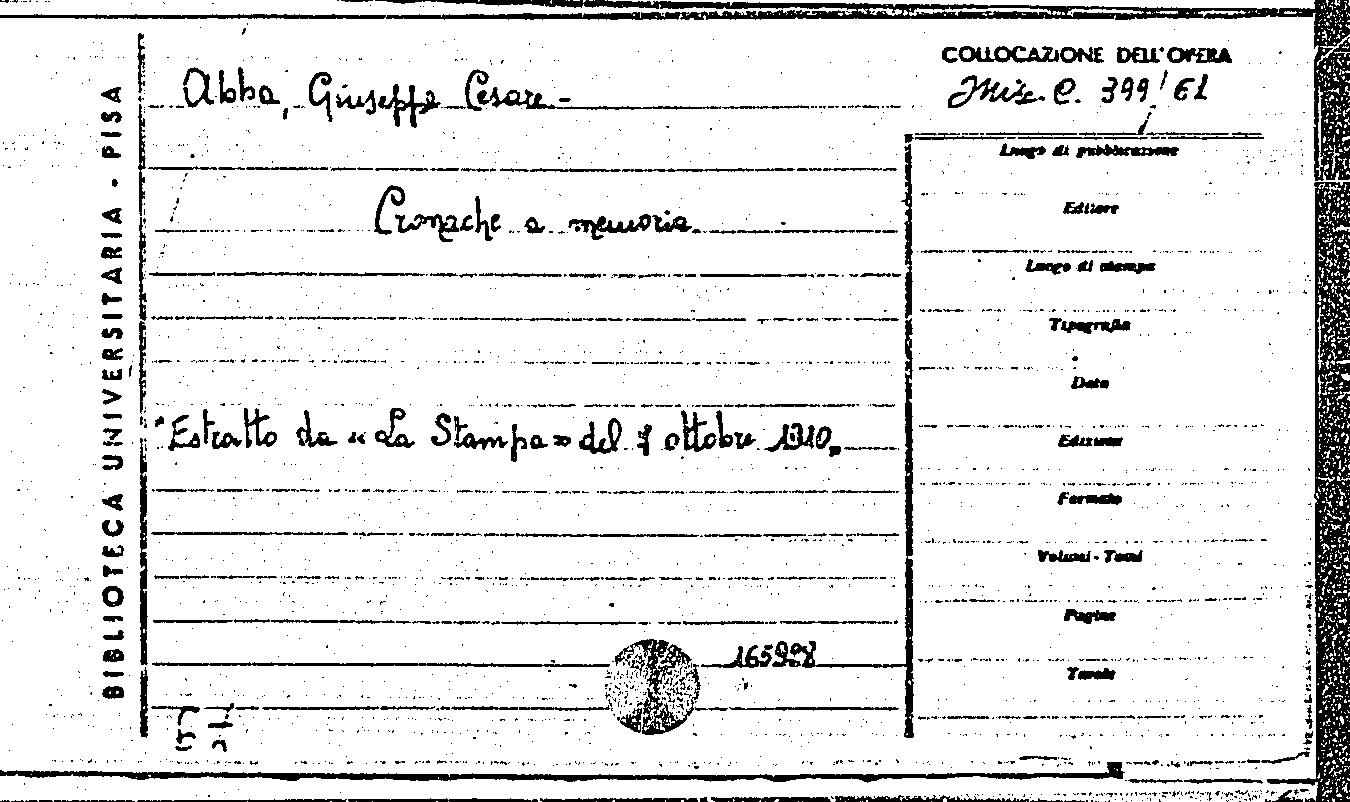 BIBLIOTECA UNIVERSITARIA - PISA
Abba, Giuseppe Cesare.-
Cronache a memoria
"Estratto da «La Stampa» del 7 ottobre 1910„
165928
COLLOCAZIONE DELL'OPERA
Misc. C. 399/61
Luogo di pubblicazione
Editore
Luogo di stampa
Tipografia
Data
Edizione
Formato
Volumi - Tomi
Pagine
Tavole